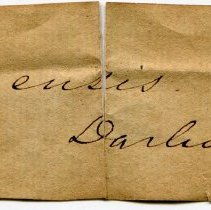 enses.
Darli